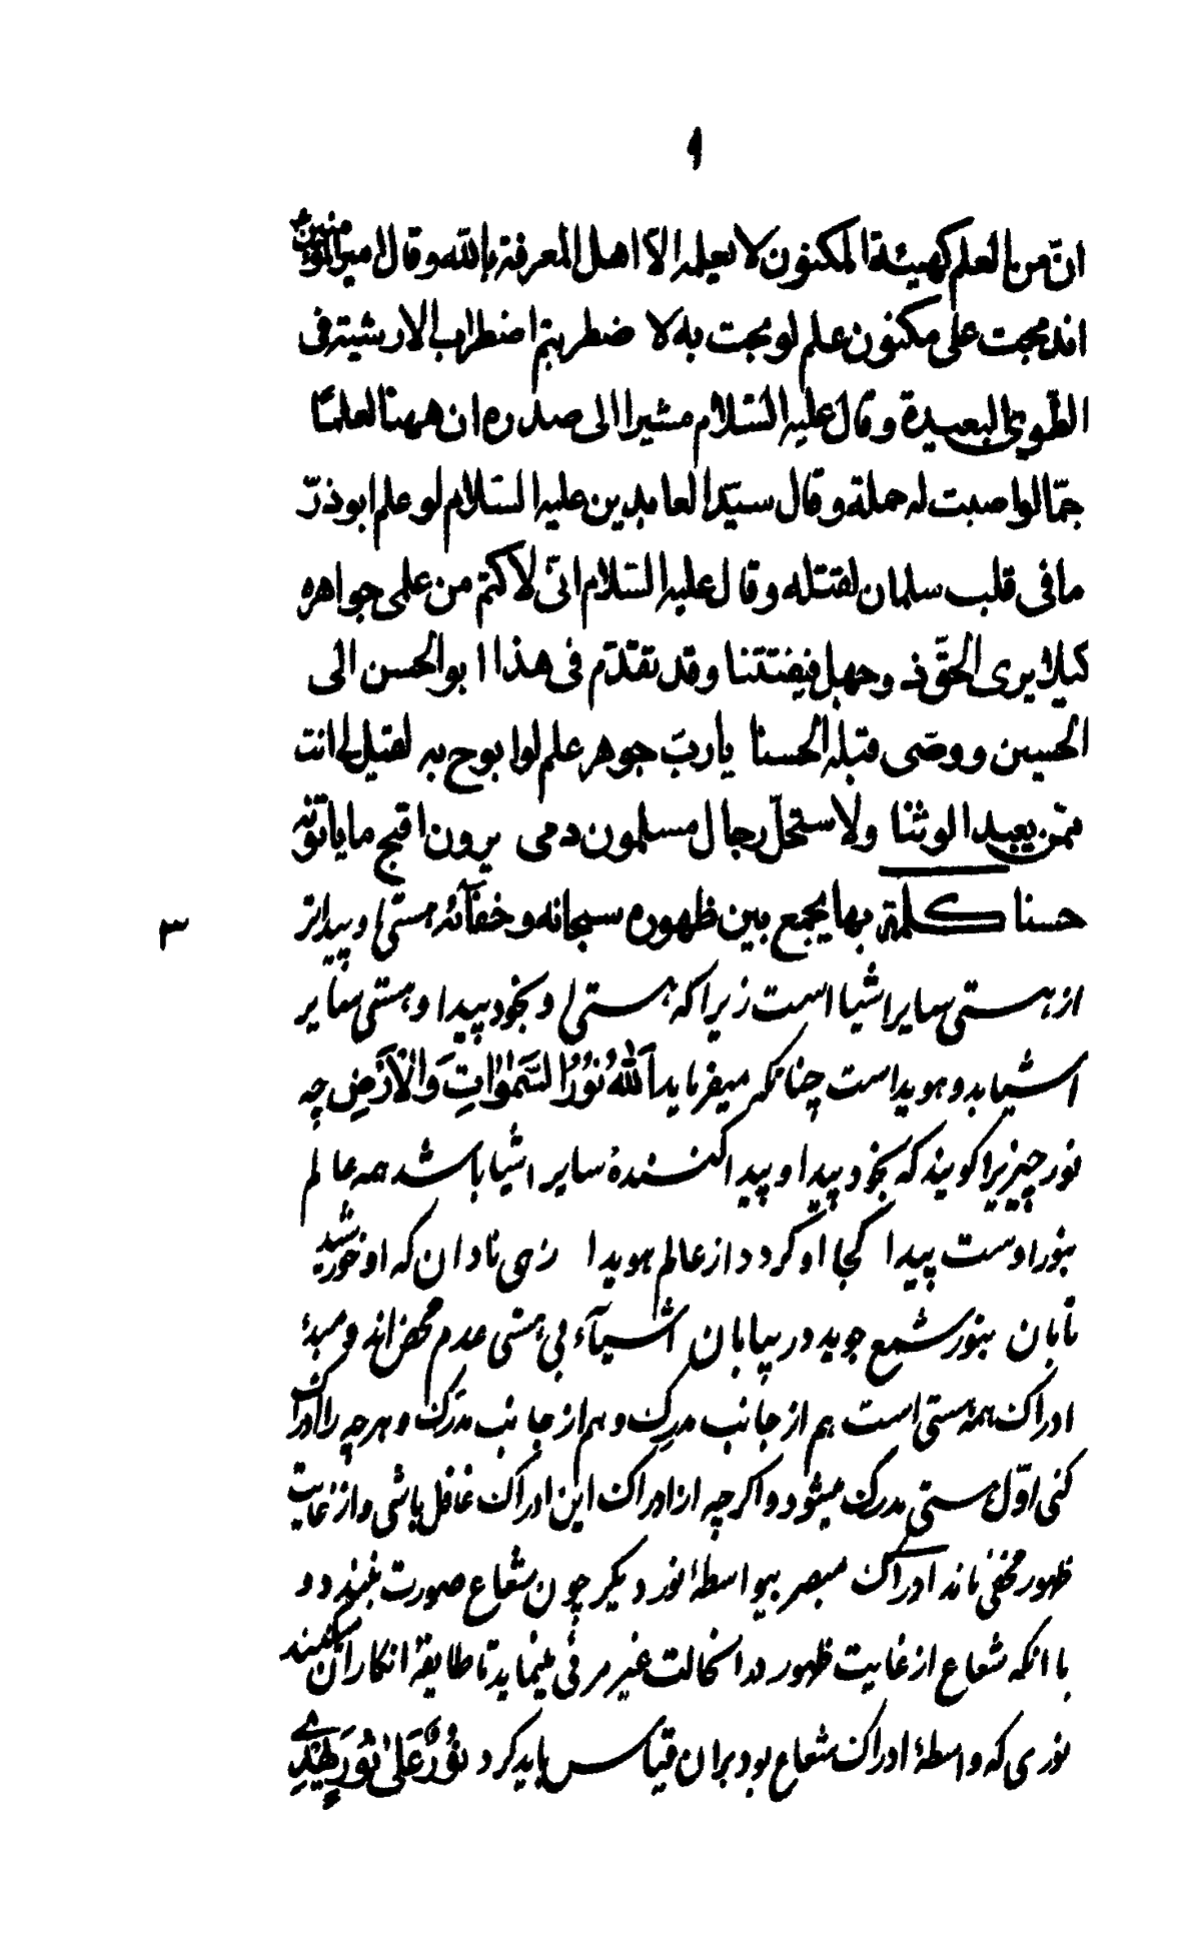 ۹
انّ من العلم كهيئة المكنون لا يعلمه الّا اهل المعرفة بالله و قال امير المؤمنين ع
اندمجت على مكنون علم لو بحت به لا ضطربتم اضطراب الارشية فى
الطّوىّ البعيدة و قال عليه السّلام مشيرا الى صدره ان ههنا لعلمًا
جمّا لو اصبت له حملة و قال سيّد العابدين عليه السّلام لو علم ابوذرّ
ما فى قلب سلمان لقتله و قال عليه السّلام انّى لاكتم من علمى جواهره
كيلا يرى الحقّ ذو جهل فيفتتنا و قد تقدّم فى هذا ابو الحسن الى
الحسين و وصّى قبله الحسنا يا ربّ جوهر علم لو ابوح به لقيل لى انت
ممّن يعبد الوثنا و لاستحلّ رجال مسلمون دمى يرون اقبح ما ياتونه
حسنا كلمة بها يجمع بين ظهوره سبحانه و خفآئه هستى او پيداتر
۳
از هستى ساير اشيا است زيرا كه هستى او بخود پيدا و هستى ساير
اشيا بدو هويداست چنانكه ميفرمايد اَللهُ نُورُ السَّمٰوٰاتِ وَالْاَرْضِ چه
نور چيزيرا گويند كه بخود پيدا و پيدا كنندهٔ ساير اشيا باشد همه عالم
بنور اوست پيدا كجا او گردد از عالم هويدا زهى نادان كه او خورشيد
تابان بنور شمع جويد در بيابان اشيآء بى هستى عدم محض‌اند و مبدء
ادراك همه هستى است هم از جانب مدرِك و هم از جانب مدرَك و هر چه را ادراك
كنى اوّل هستى مدرك ميشود و اگر چه از ادراك اين ادراك غافل باشى و از غايت
ظهور مخفى ماند ادراك مبصر بيواسطهٔ نور ديگر چون شعاع صورت نبندد و
با انكه شعاع از غايت ظهور در انحالت غير مرئى مينمايد تا طايفهٔ انكار ان ميكنند
نورى كه واسطهٔ ادراك شعاع بود بر ان قياس بايد كرد نُورٌ عَلىٰ نُورٍ يَهْدِى